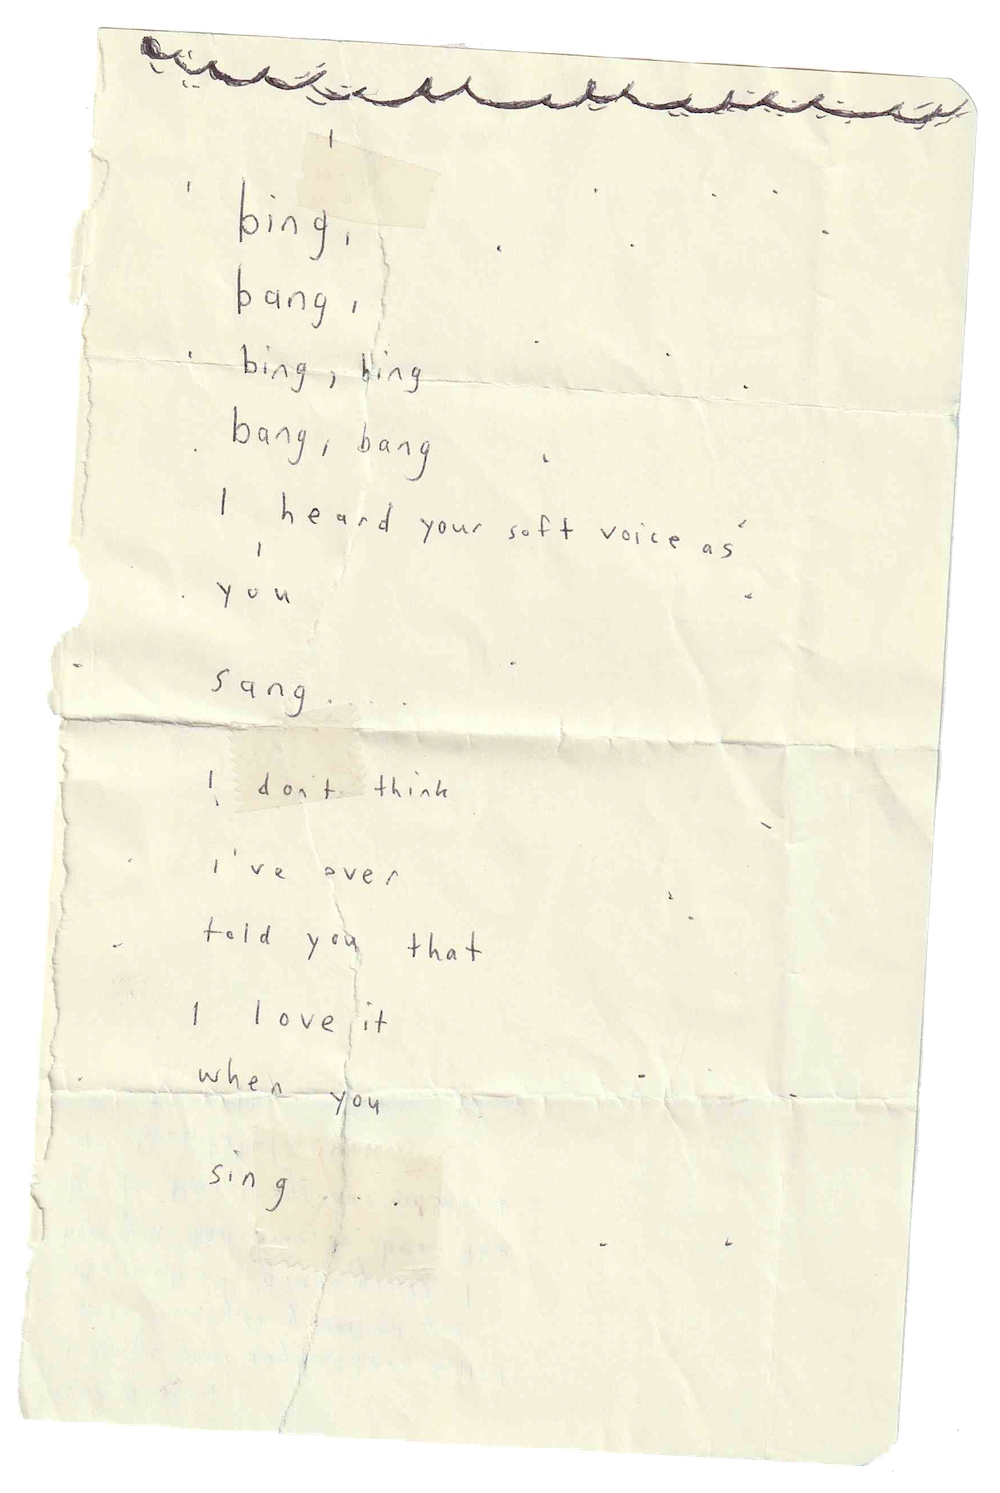 bing,
bang,
bing, bing
bang, bang
I heard your soft voice as
you
sang....
I don't think
i've over
told you that
I love it
when you
sing....